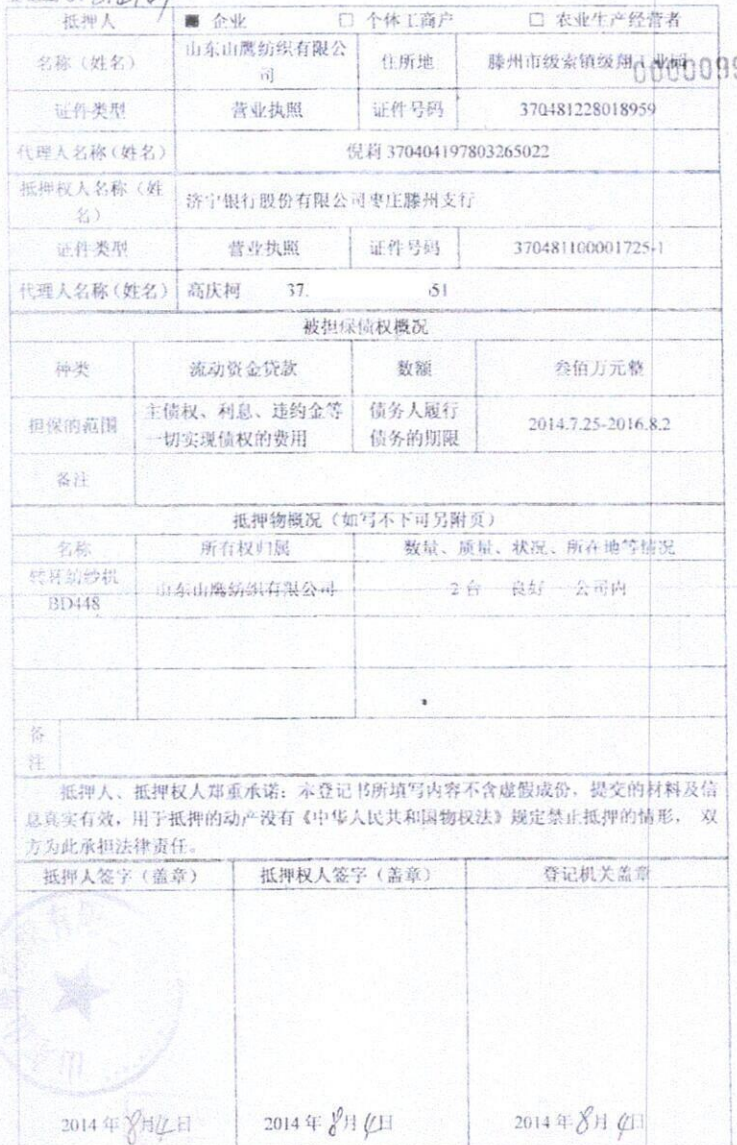 抵押人 ■ 企业 □ 个体工商户 □ 农业生产经营者
山东山鹰纺织有限公
名称(姓名) 住所地 滕州市级索镇级翔工业园
司
000009
证件类型 营业执照 证件号码 370481228018959
代理人名称(姓名) 倪莉 370404197803265022
抵押权人名称(姓
名) 济宁银行股份有限公司枣庄滕州支行
证件类型 营业执照 证件号码 370481100001725-1
代理人名称(姓名) 高庆柯 37. 51
被担保债权概况
种类 流动资金贷款 数额 叁佰万元整
主债权、利息、违约金等 债务人履行
担保的范围 2014.7.25-2016.8.2
一切实现债权的费用 债务的期限
备注
抵押物概况(如写不下可另附页)
名称 所有权归属 数量、质量、状况、所在地等情况
转杯纺纱机
BD448 山东山鹰纺织有限公司 2台 良好 公司内
备
注
抵押人、抵押权人郑重承诺:本登记书所填写内容不含虚假成份,提交的材料及信
息真实有效,用于抵押的动产没有《中华人民共和国物权法》规定禁止抵押的情形, 双
方为此承担法律责任。
抵押人签字(盖章) 抵押权人签字(盖章) 登记机关盖章
2014年8月4日 2014年8月4日 2014年8月4日